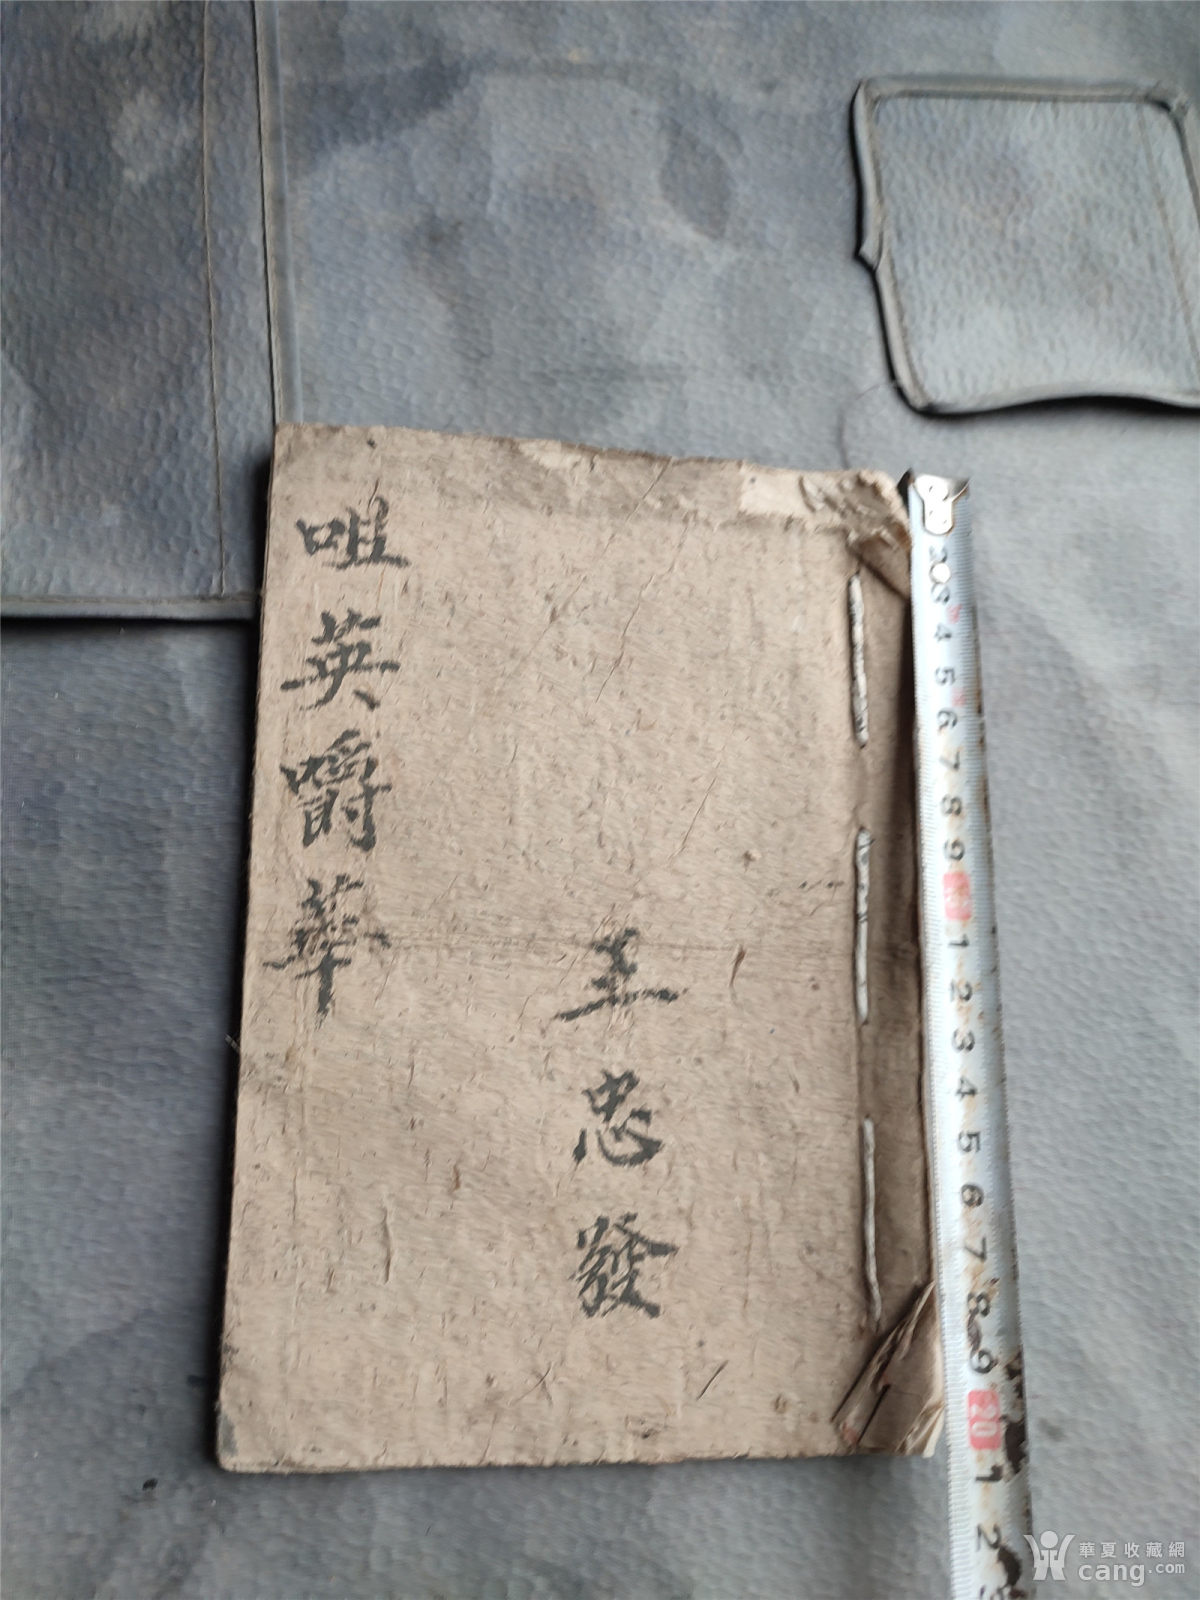 咀英嚼華
王忠發
2 3 4 5 6 7 8 9 10 1 2 3 4 5 6 7 8 9 20 1 2 3
華夏收藏網
cang.com